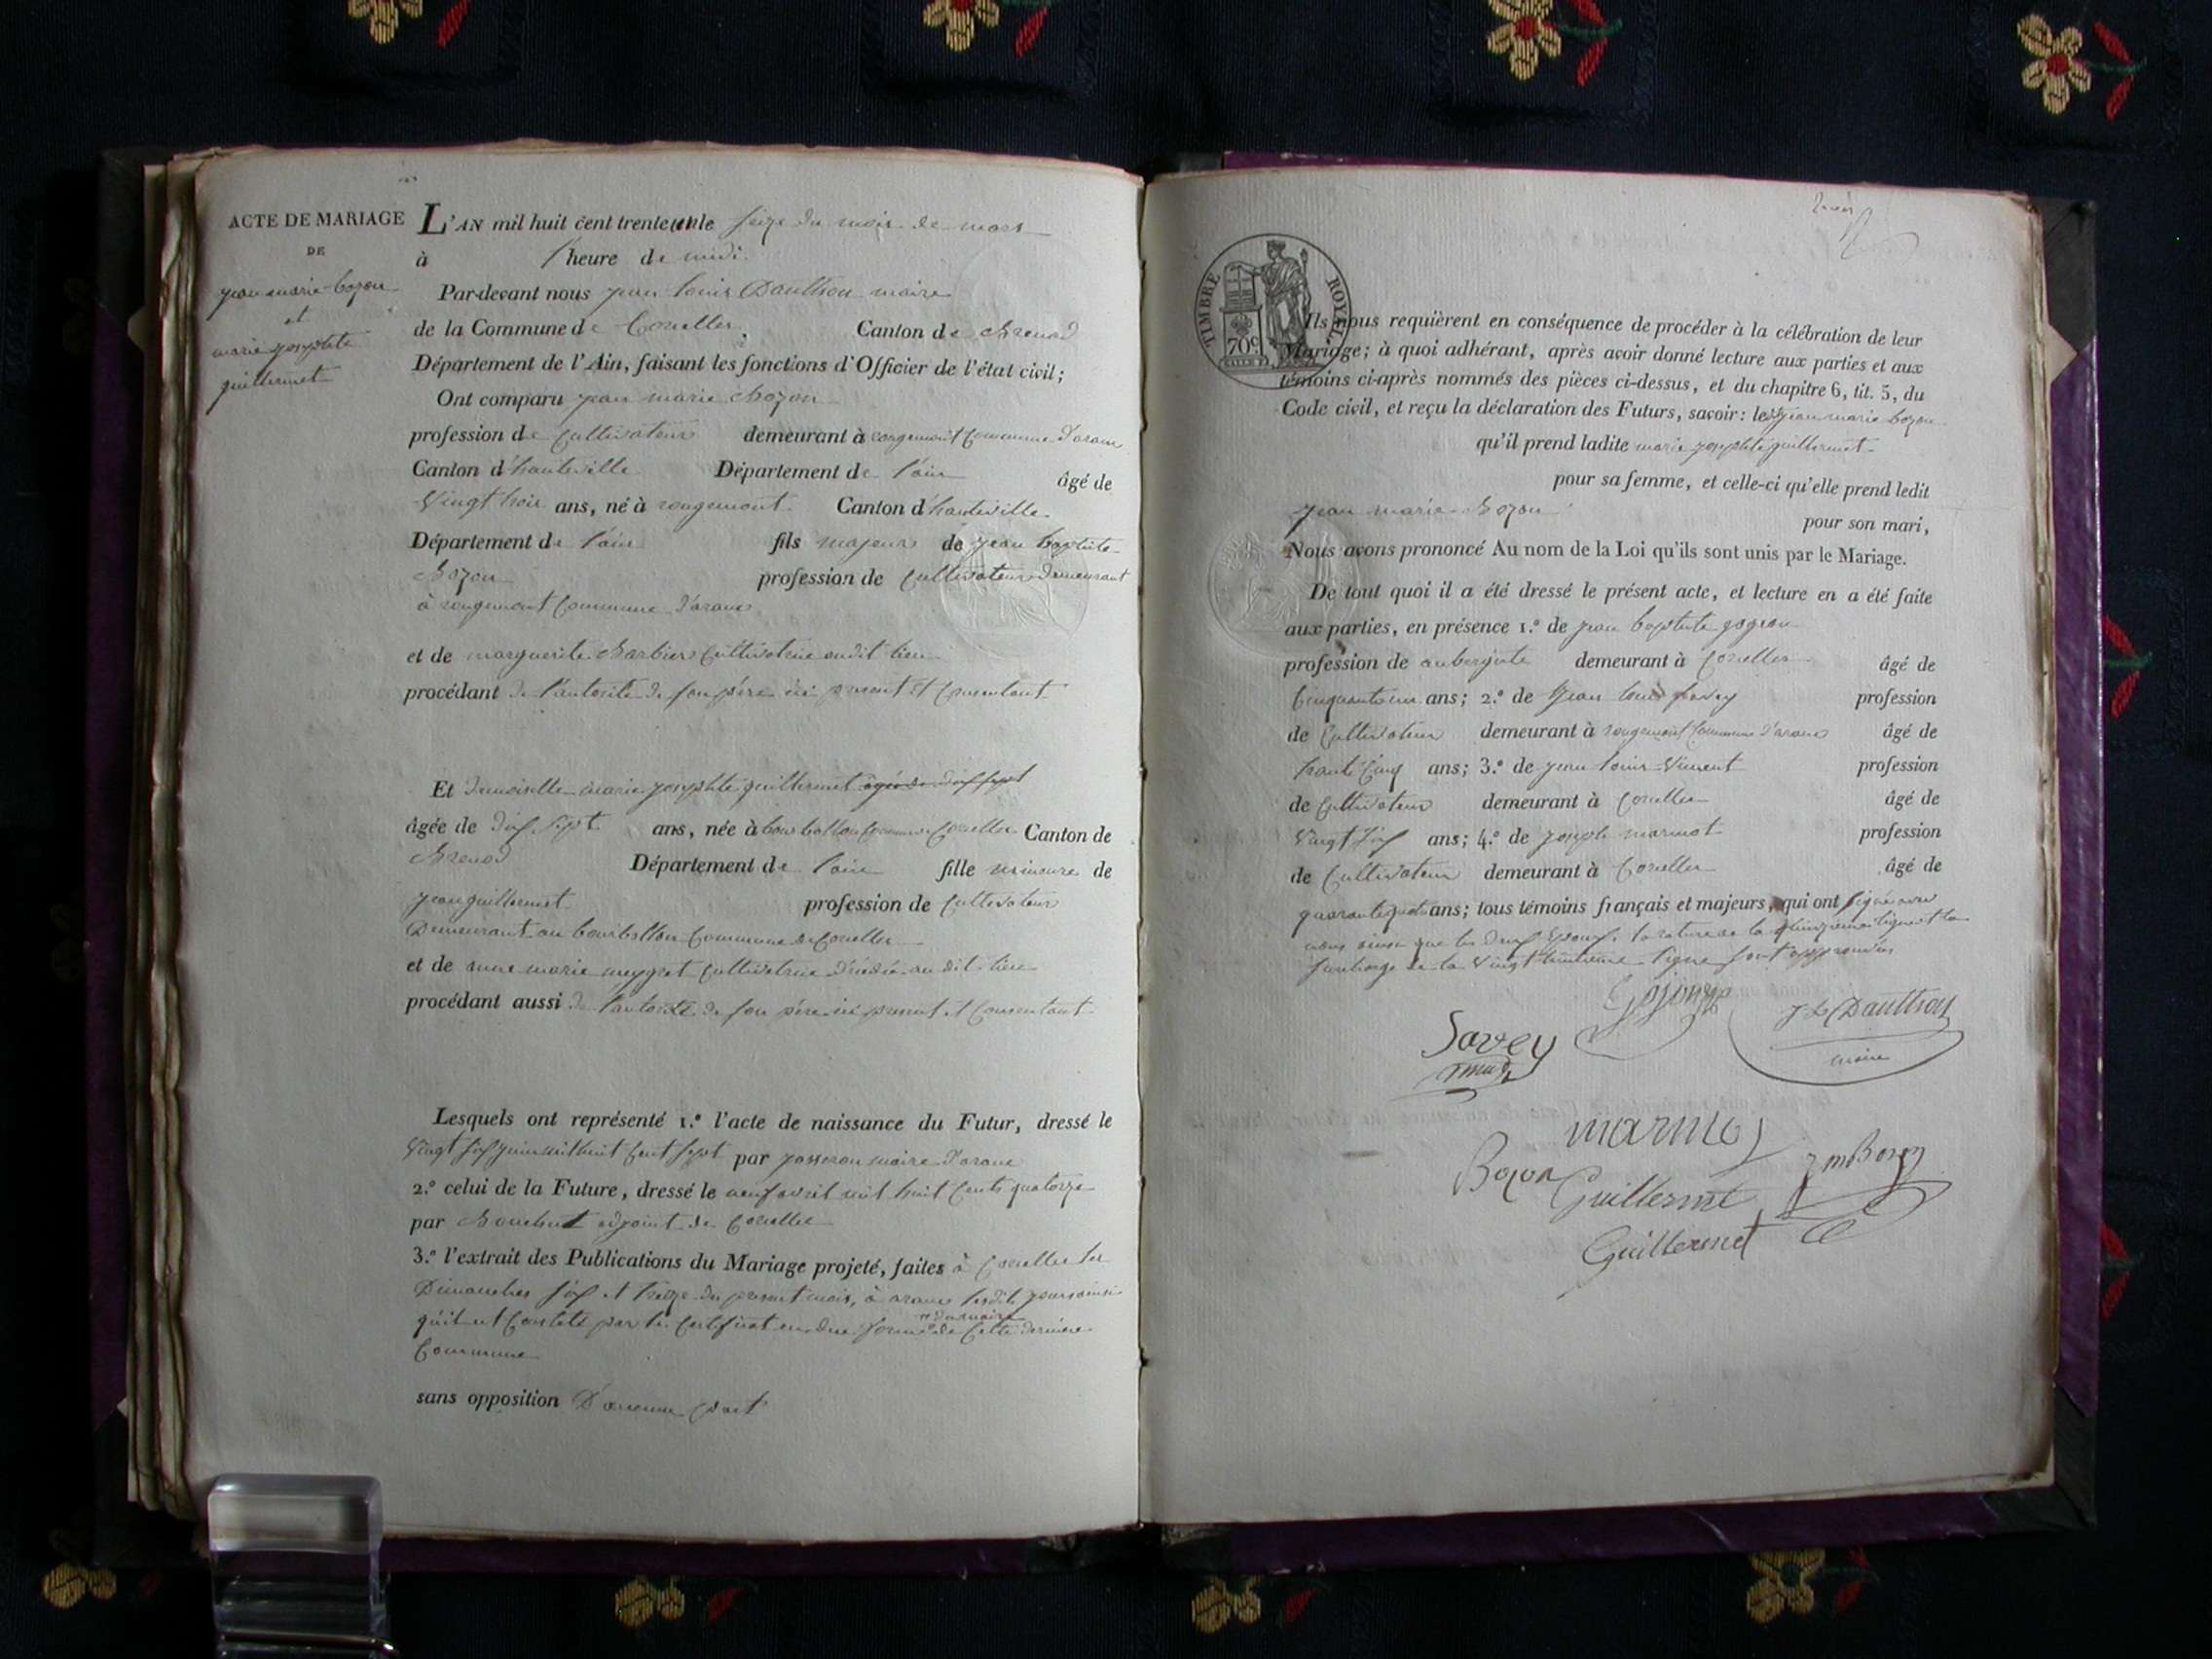 ACTE DE MARIAGE
DE
jean marie bozon
et
marie josephte
guillermet
L'AN mil huit cent trente un le seize du mois de mars
à l'heure de midi
Par-devant nous jean louis Daulthon maire
de la Commune de Corcelles Canton de Brenod
Département de l'Ain, faisant les fonctions d'Officier de l'état civil;
Ont comparu jean marie Bozon
profession de Cultivateur demeurant à rougemont Commune d'aranc
Canton d'hauteville Département de l'ain âgé de
Vingt trois ans, né à rougemont Canton d'hauteville
Département de l'ain fils majeur de jean baptiste
Bozon profession de Cultivateur Demeurant
à rougemont Commune d'aranc
et de marguerite Barbier Cultivatrice audit lieu
procédant de l'autorité de son père ici présent et Consentant
Et Demoiselle marie josephte guillermet âgée de dix sept
âgée de dix sept ans, née à Commune Corcelles Canton de
Brenod Département de l'ain fille mineure de
jean guillermet profession de Cultivateur
Demeurant au Commune de Corcelles
et de anne marie meygret Cultivatrice au dit lieu
procédant aussi de l'autorité de son père ici présent et Consentant
Lesquels ont représenté 1.º l'acte de naissance du Futur, dressé le
Vingt six juin mil huit Cent sept par passeron maire d'aranc
2.º celui de la Future, dressé le neuf avril mil huit Cents quatorze
par Bouchut adjoint de Corcelles
3.º l'extrait des Publications du Mariage projeté, faites à Corcelles les
Dimanches six et treize du présent mois, à aranc lesdits jours ainsi
qu'il est Constaté par le Certificat en due forme du maire de Cette dernière
Commune
sans opposition D'aucune part
TIMBRE ROYAL
70c
Ils nous requièrent en conséquence de procéder à la célébration de leur
Mariage; à quoi adhérant, après avoir donné lecture aux parties et aux
témoins ci-après nommés des pièces ci-dessus, et du chapitre 6, tit. 5, du
Code civil, et reçu la déclaration des Futurs, savoir: ledit jean marie bozon
qu'il prend ladite marie josephte guillermet
pour sa femme, et celle-ci qu'elle prend ledit
jean marie Bozon pour son mari,
Nous avons prononcé Au nom de la Loi qu'ils sont unis par le Mariage.
De tout quoi il a été dressé le présent acte, et lecture en a été faite
aux parties, en présence 1.º de jean baptiste gojon
profession de aubergiste demeurant à Corcelles âgé de
Cinquante un ans; 2.º de jean louis savey profession
de Cultivateur demeurant à rougemont Commune d'aranc âgé de
trente Cinq ans; 3.º de jean louis Vincent profession
de Cultivateur demeurant à Corcelles âgé de
Vingt six ans; 4.º de joseph marmot profession
de Cultivateur demeurant à Corcelles âgé de
quarante quatre ans; tous témoins français et majeurs, qui ont signé avec
nous ainsi que les deux Epoux. la rature de la quinzième ligne et la
surcharge de la Vingt huitième ligne sont approuvées
Gojon
Savey
J L Daulthon
maire
marmot
Bozon
Guillermet
J m Bozon
Guillermet